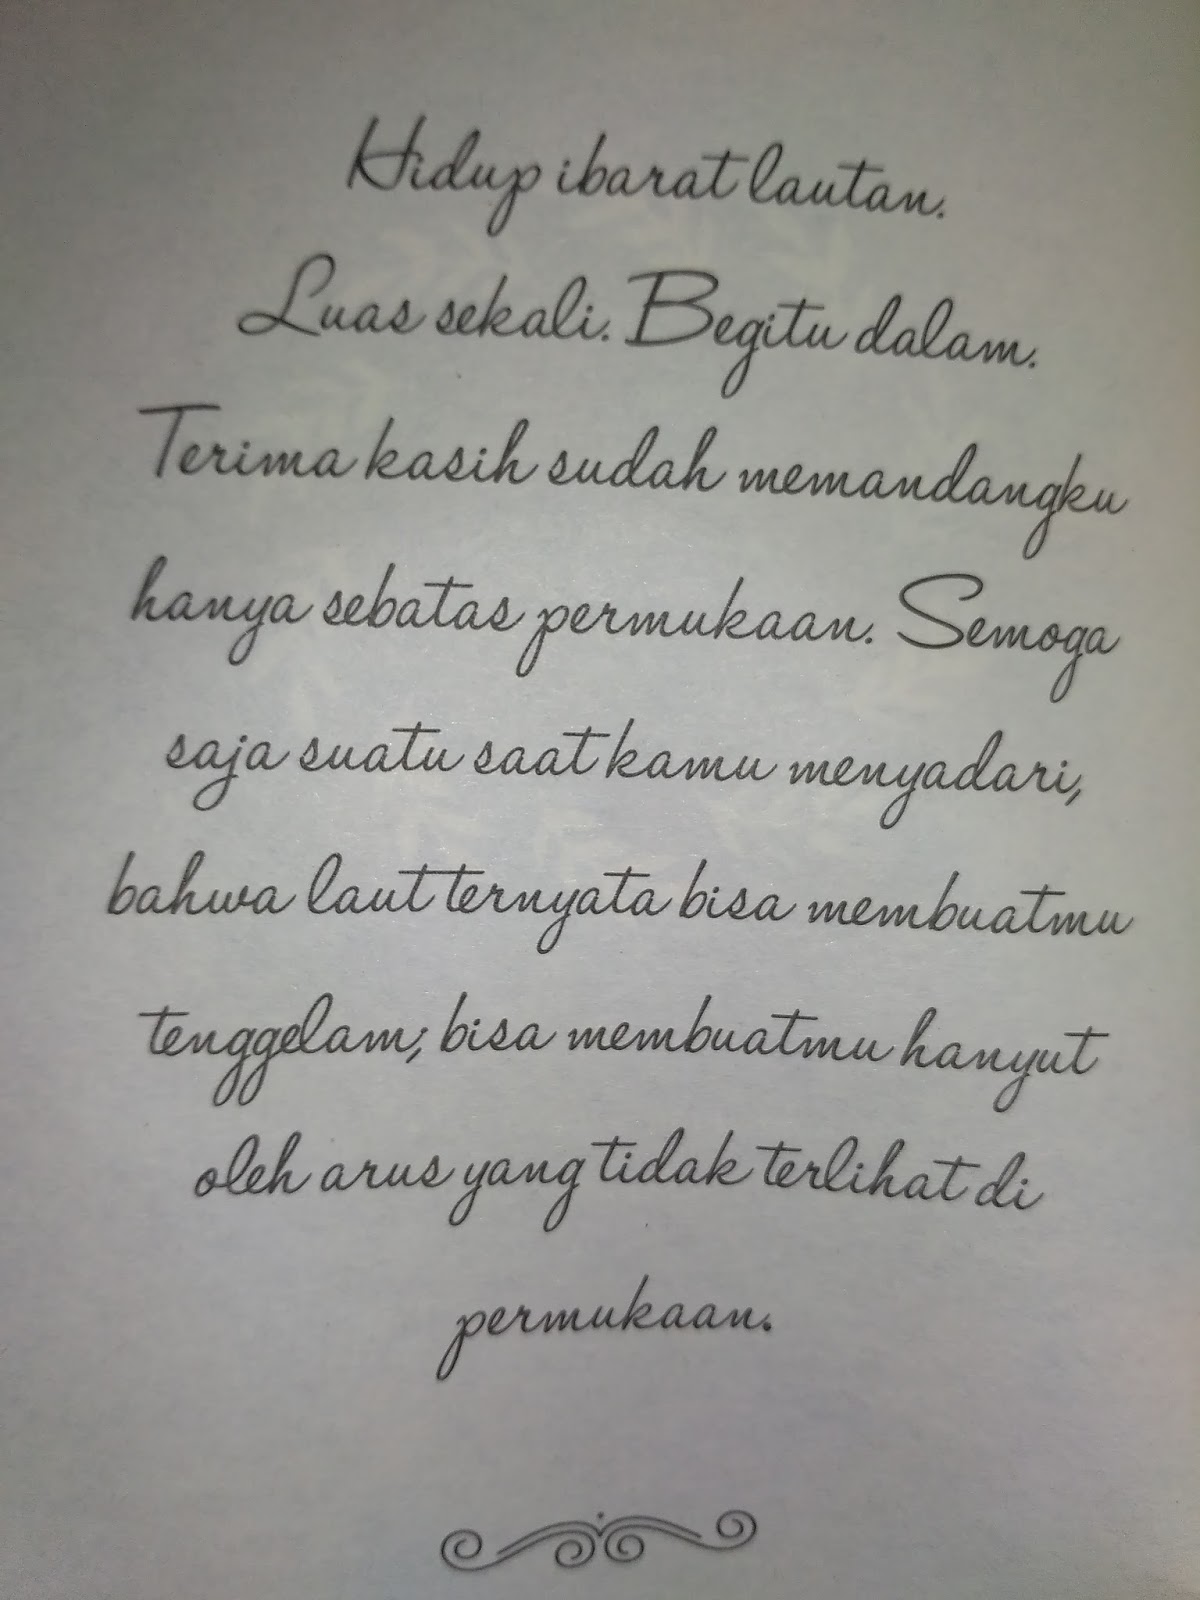 Hidup ibarat lautan.
Luas sekali. Begitu dalam.
Terima kasih sudah memandangku
hanya sebatas permukaan. Semoga
saja suatu saat kamu menyadari,
bahwa laut ternyata bisa membuatmu
tenggelam; bisa membuatmu hanyut
oleh arus yang tidak terlihat di
permukaan.